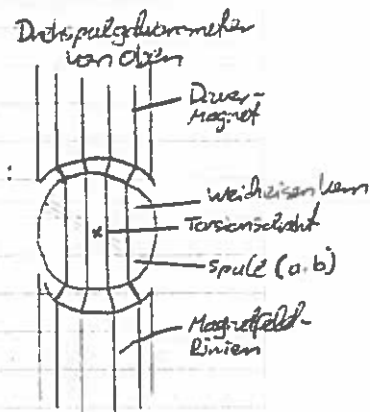 Drehspulgalvanometer
von oben
Dauer-
Magnet
:
Weicheisenkern
Torsionsdraht
x
Spule (a·b)
Magnetfeld-
linien